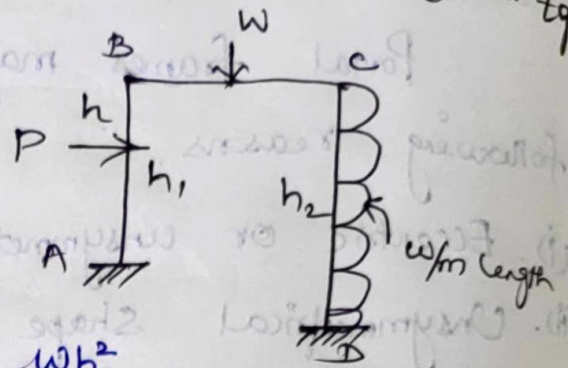 W
B
C
h
P
h₁
h₂
A
w/m length
D
Wh²